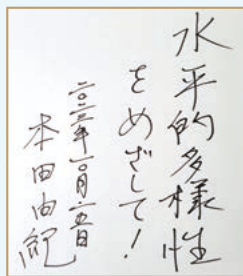 水平的多様性
をめざして!
二〇二三年一〇月二五日
本田由紀